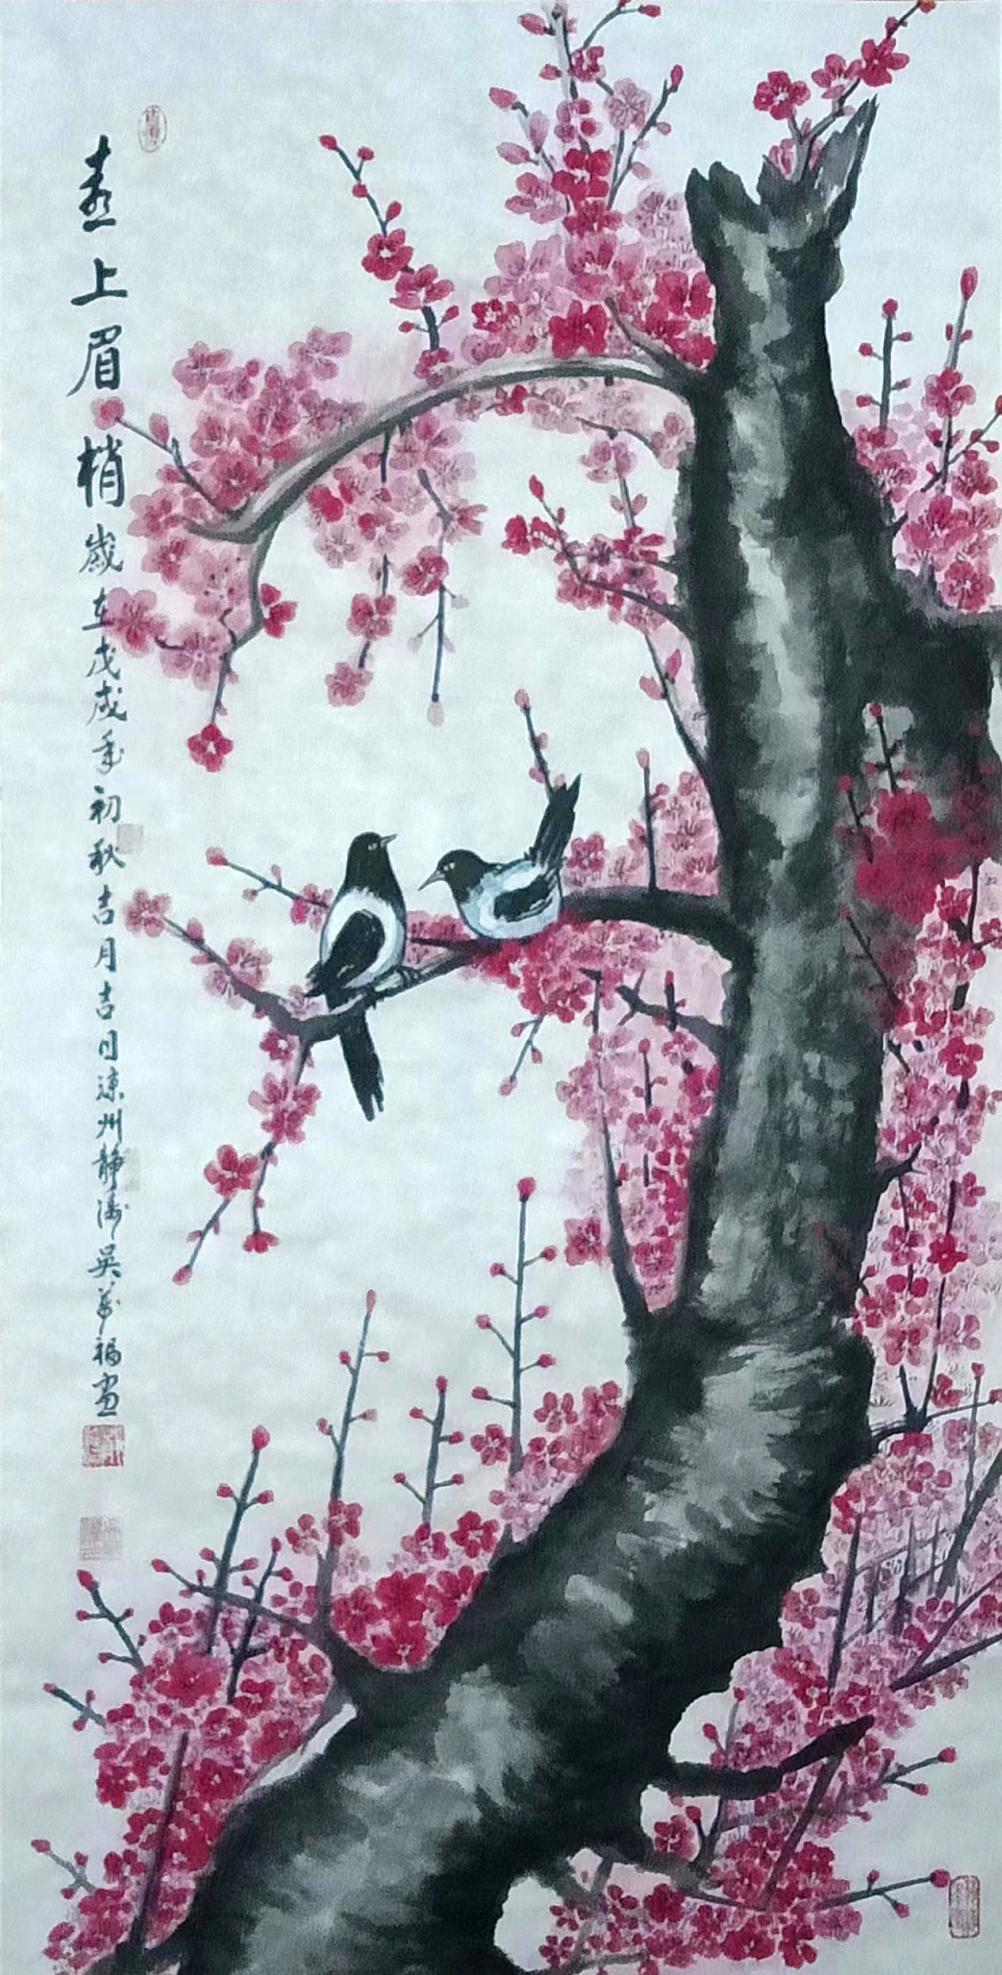 喜上眉梢歲在戊戌年初秋吉月吉日涼州靜濤吳萬福畫